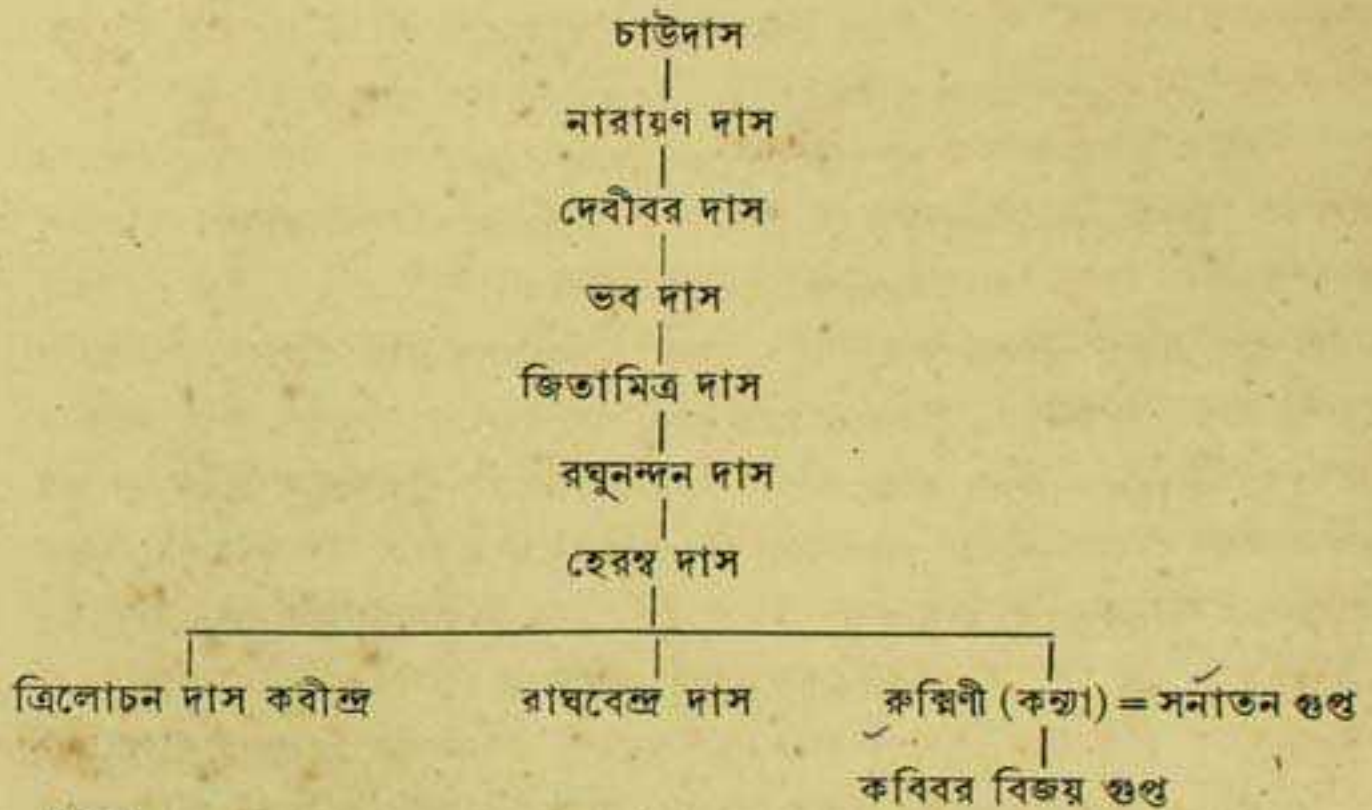 চাউদাস
নারায়ণ দাস
দেবীবর দাস
ভব দাস
জিতামিত্র দাস
রঘুনন্দন দাস
হেরম্ব দাস
ত্রিলোচন দাস কবীন্দ্র রাঘবেন্দ্র দাস রুক্মিণী (কন্যা) = সনাতন গুপ্ত
কবিবর বিজয় গুপ্ত